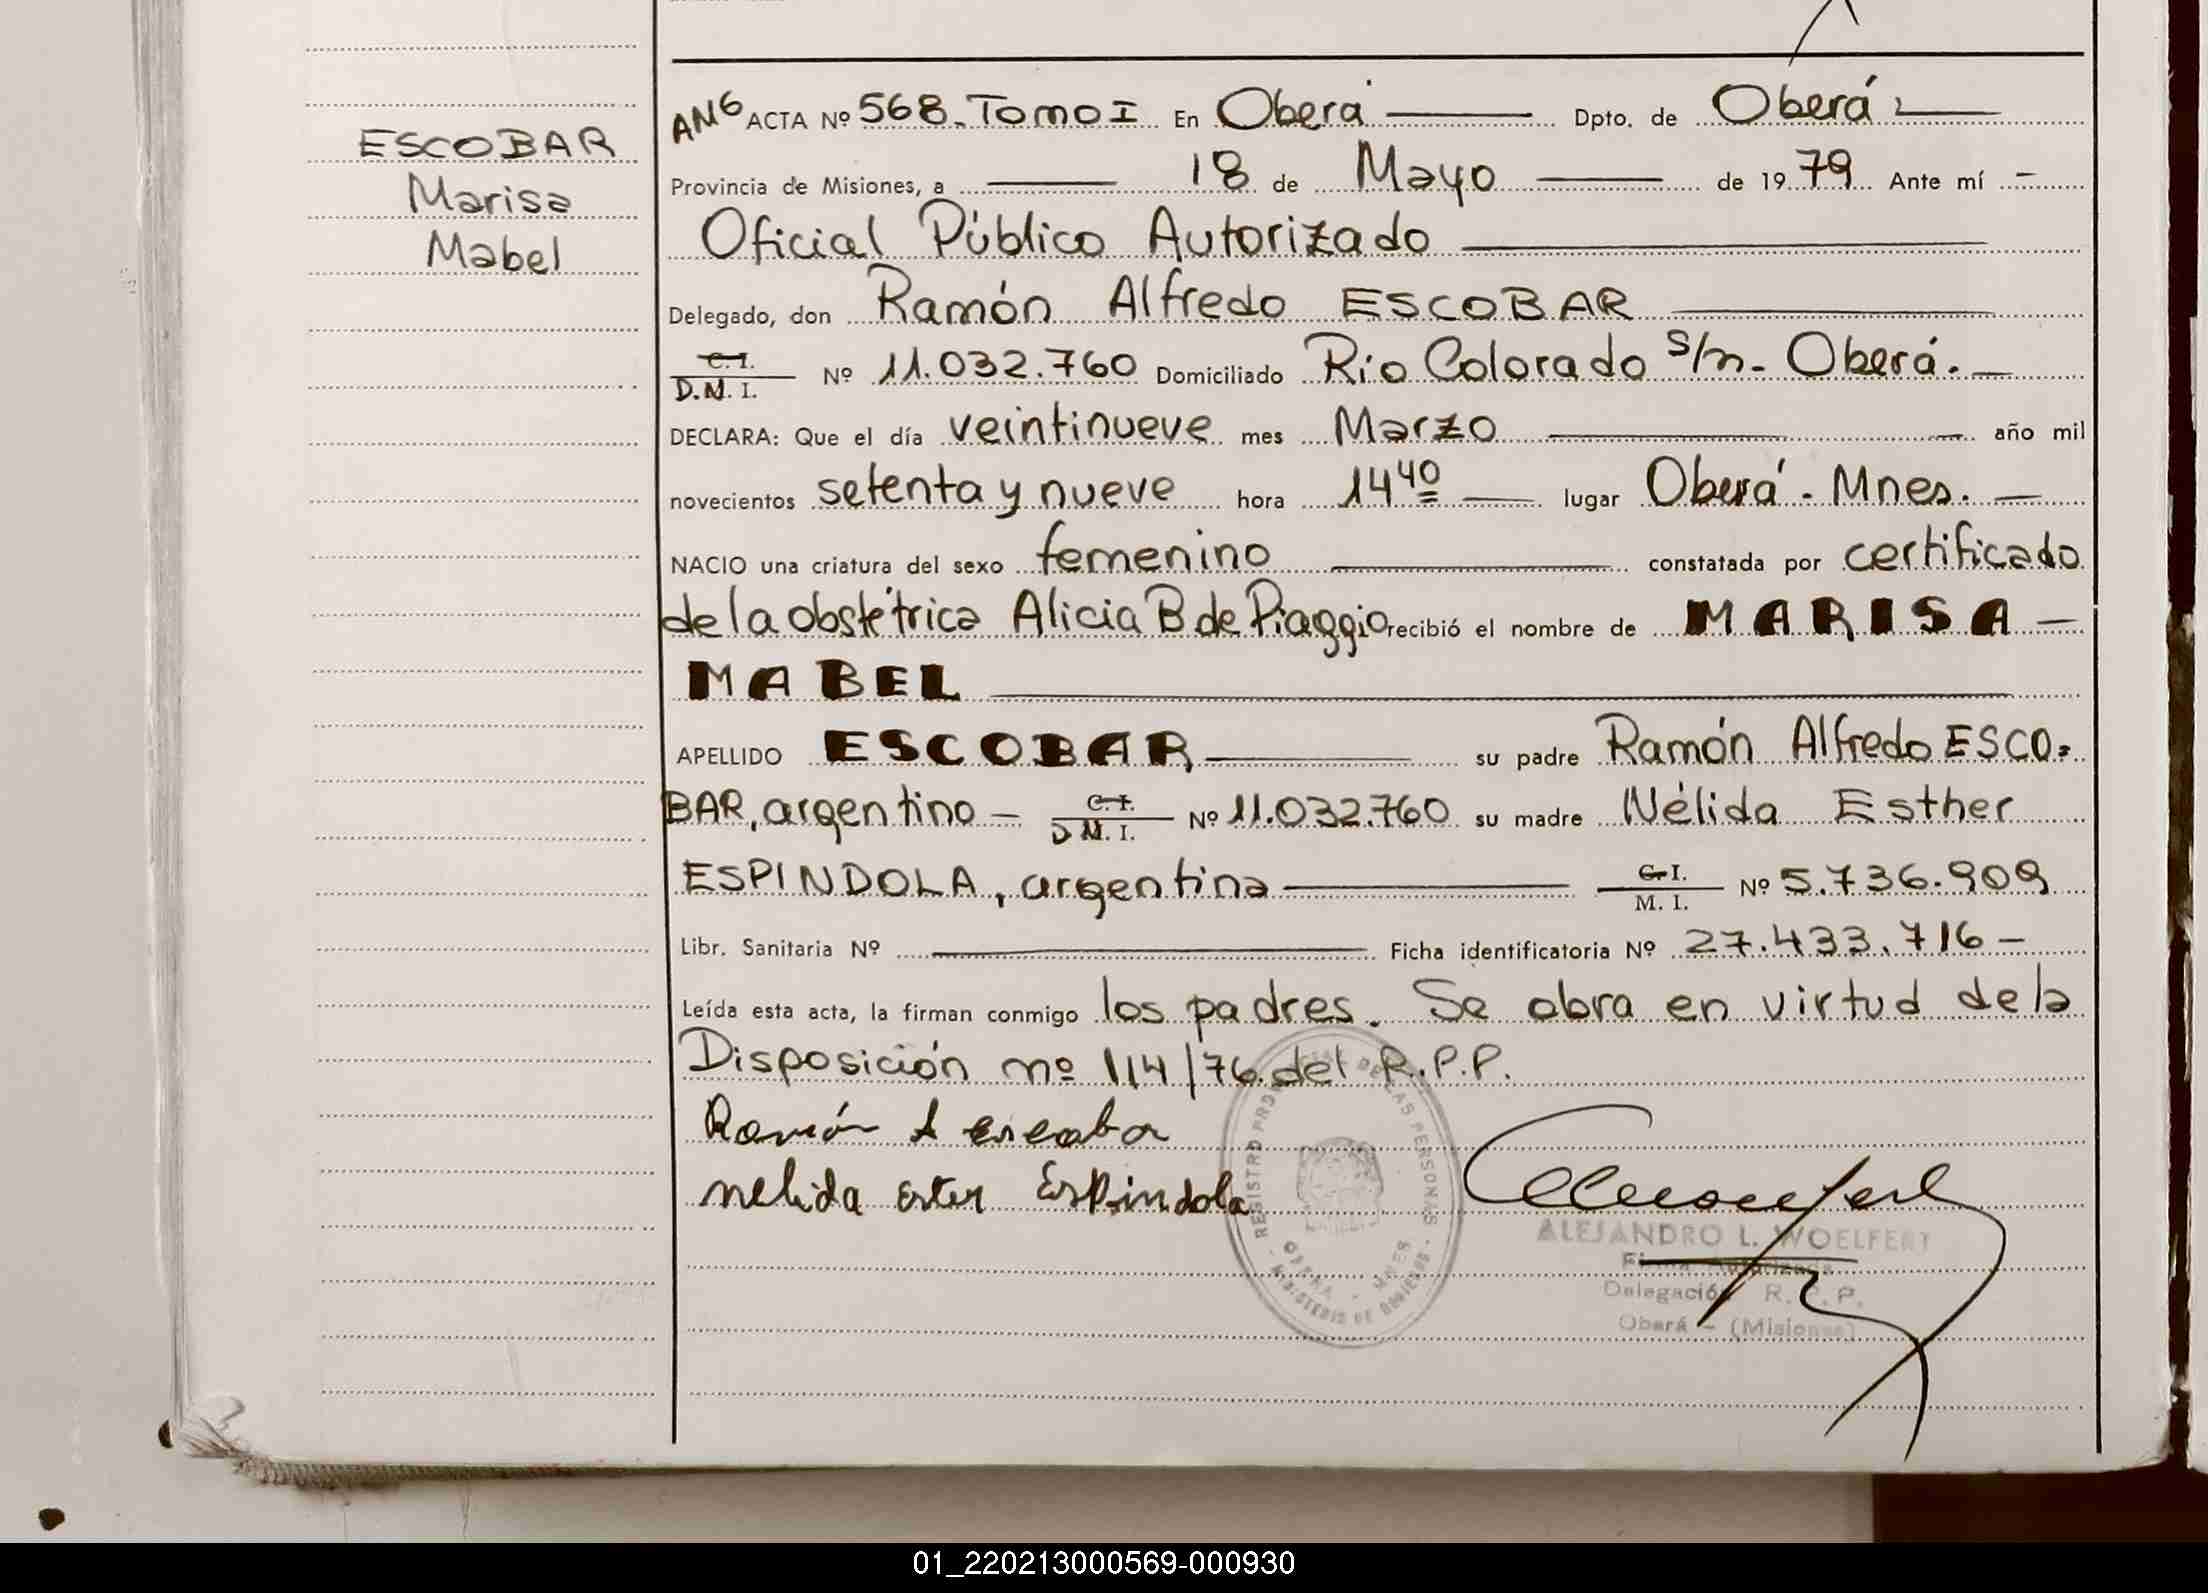 ESCOBAR
Marisa
Mabel
AMG ACTA Nº 568. Tomo I En Oberá Dpto. de Oberá
Provincia de Misiones, a 18 de Mayo de 1979 Ante mí
Oficial Público Autorizado
Delegado, don Ramón Alfredo ESCOBAR
C. I.
D.M. I. Nº 11.032.760 Domiciliado Río Colorado s/n. Oberá.
DECLARA: Que el día veintinueve mes Marzo año mil
novecientos setenta y nueve hora 14 40 lugar Oberá. Mnes.
NACIO una criatura del sexo femenino constatada por certificado
de la obstétrica Alicia B de Piaggio recibió el nombre de MARISA
MABEL
APELLIDO ESCOBAR su padre Ramón Alfredo ESCO-
BAR, argentino C. I. D M. I. Nº 11.032.760 su madre Nélida Esther
ESPINDOLA, argentina C. I. M. I. Nº 5.736.909
Libr. Sanitaria Nº Ficha identificatoria Nº 27.433.716
Leída esta acta, la firman conmigo los padres. Se obra en virtud de la
Disposición nº 114/76 del R.P.P.
Ramón A escobar
nelida ester Espindola
REGISTRO PROVINCIAL DE LAS PERSONAS
OBERA - MNES
MINISTERIO DE GOBIERNO
ALEJANDRO L. WOELFERT
Firma Autorizada
Delegación R. P. P.
Oberá - (Misiones)
01_220213000569-000930